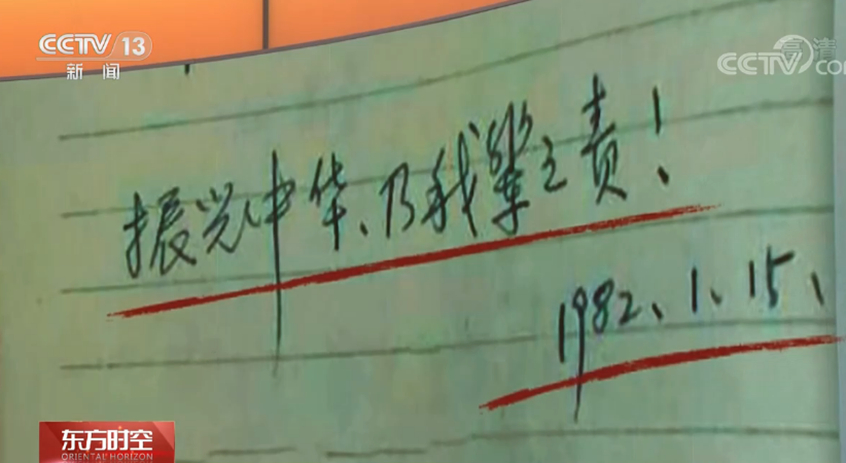 CCTV 13
新闻
高清
CCTV.CO
振兴中华、乃我辈之责!
1982、1、15、
东方时空
ORIENTAL HORIZON